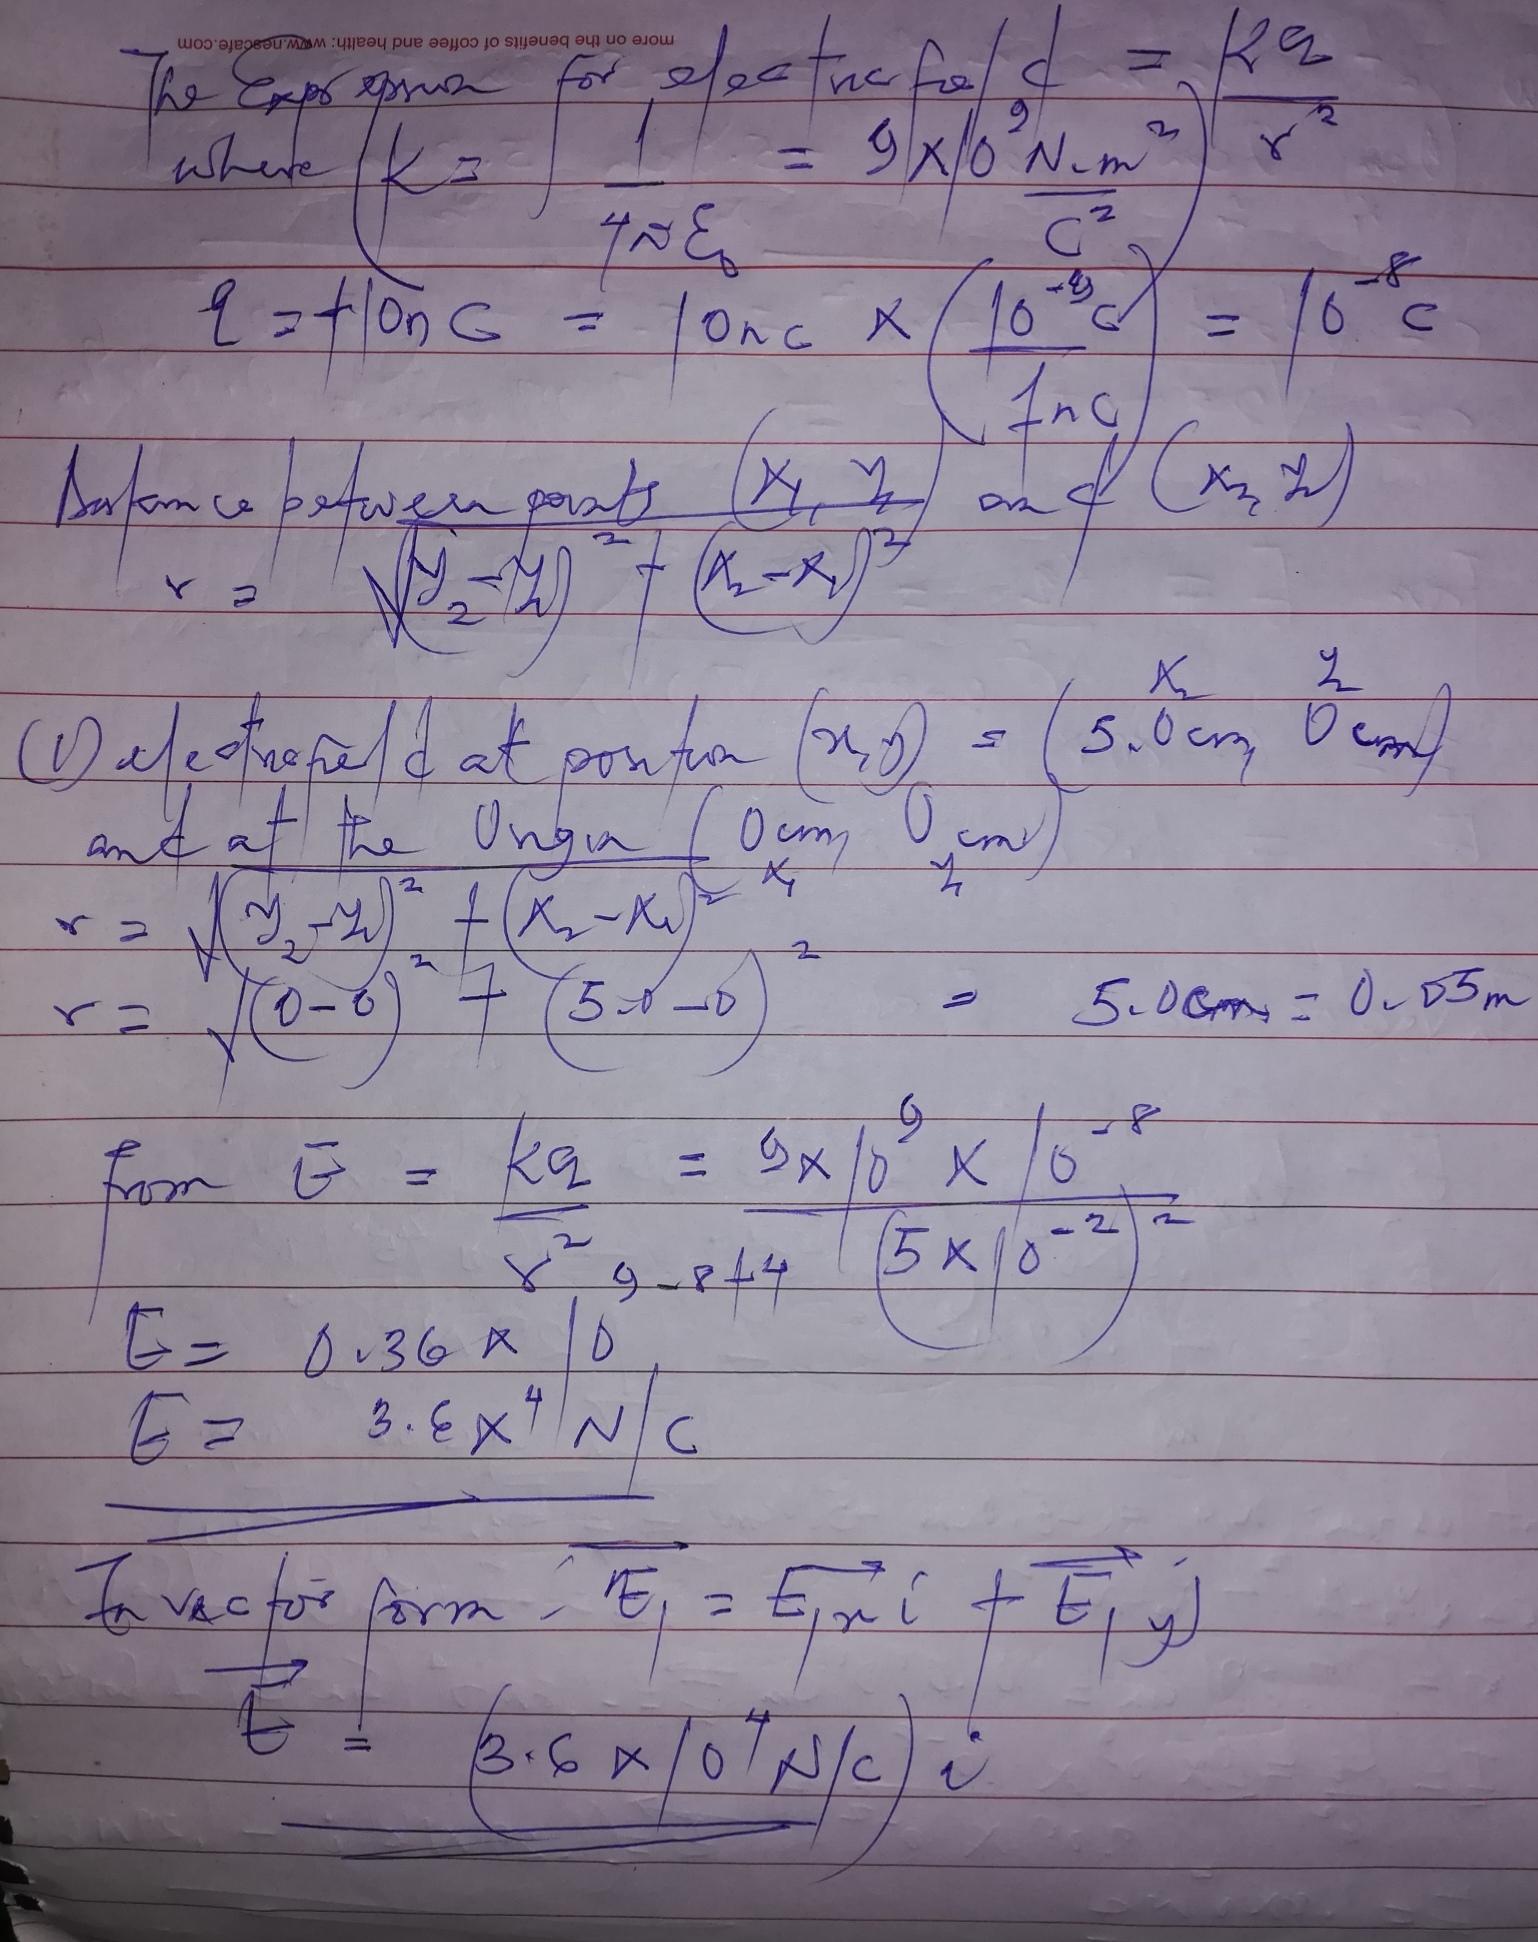 more on the benefits of coffee and health: www.nescafe.com
The Expression for electric field = kq / r²
where (k = 1 / 4π ε₀ = 9 x 10⁹ N.m² / C²)
q = +10nC = 10nc x (10⁻⁹c / 1nc) = 10⁻⁸ c
Distance between points (x₁, y₁) and (x₂, y₂)
r = √(y₂-y₁)² + (x₂-x₁)²
x₂ y₂
(1) electric field at position (x,y) = (5.0cm, 0cm)
and at the Origin (0cm, 0cm)
x₁ y₁
r = √(y₂-y₁)² + (x₂-x₁)²
r = √(0-0)² + (5.0-0)² = 5.0cm = 0.05m
from E = kq / r² = 9x10⁹ x 10⁻⁸ / (5x10⁻²)²
E = 0.36 x 10⁹⁻⁸⁺⁴
E = 3.6 x⁴ N/C
In vector form: E₁ = E₁x i + E₁y j
E = (3.6 x 10⁴ N/C) i